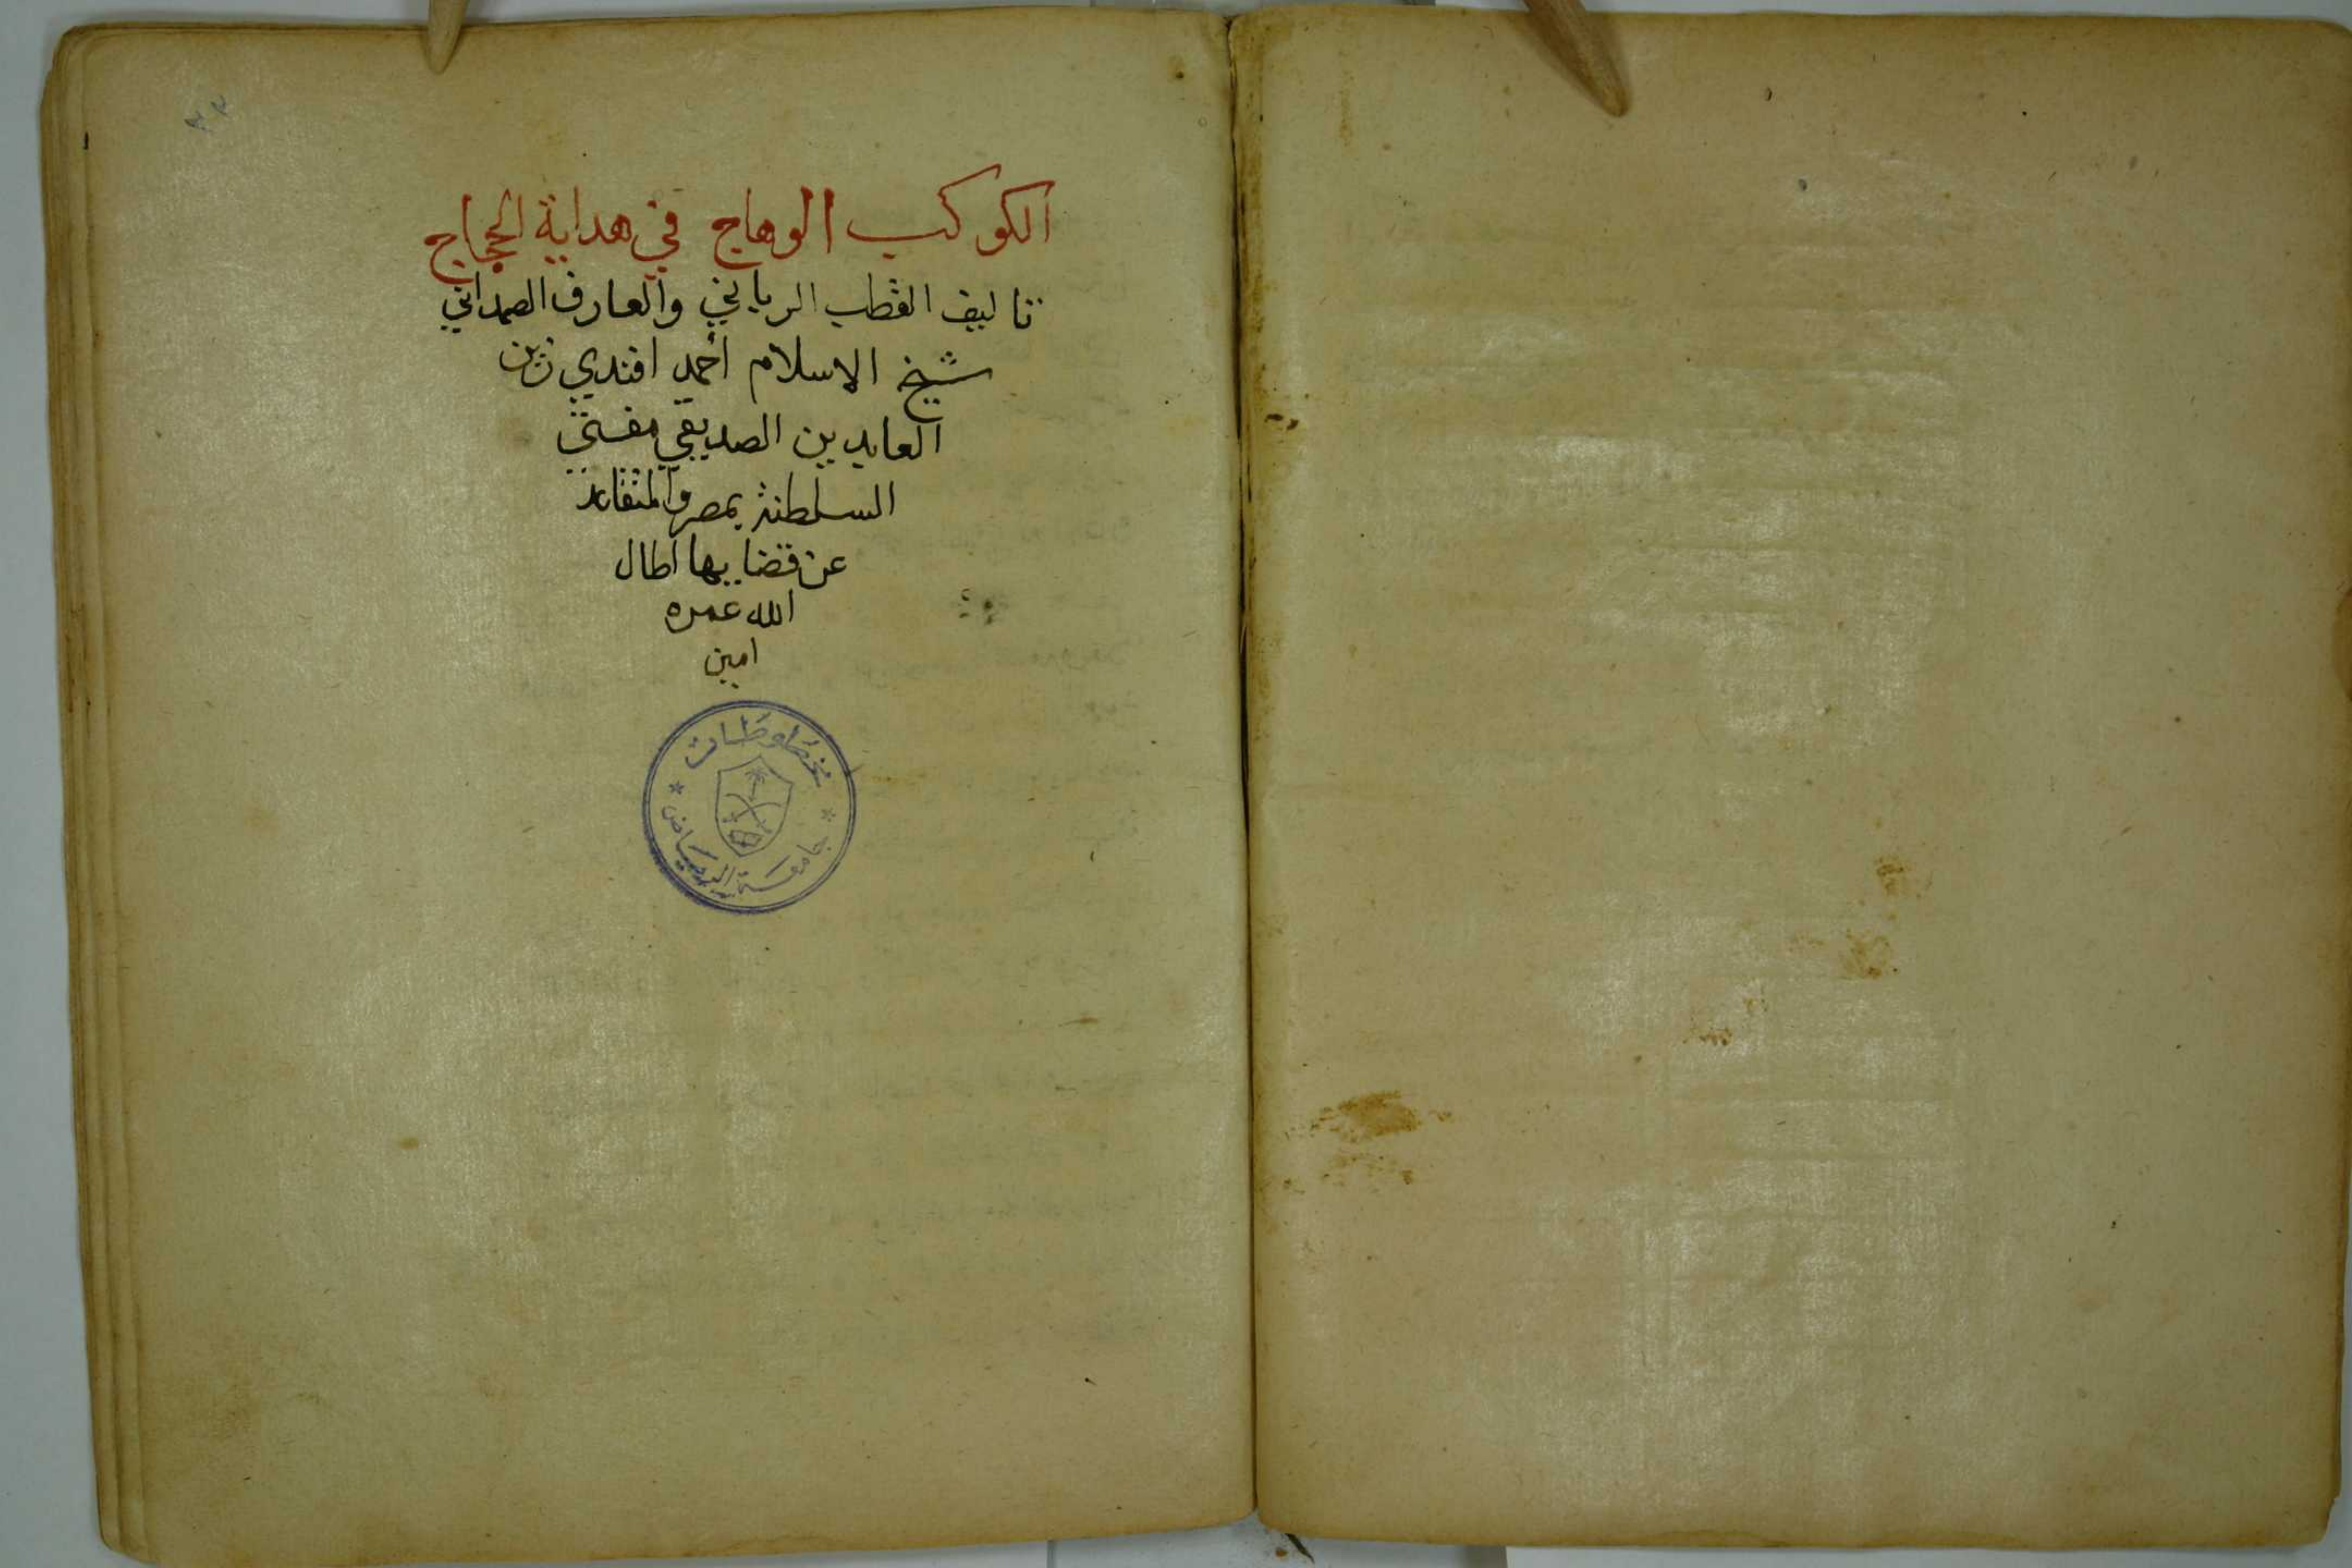 ٣٣
الكوكب الوهاج في هداية الحجاج
تاليف القطب الرباني والعارف الصمداني
شيخ الاسلام أحمد افندي زين
العابدين الصديقي مفتي
السلطنة بمصر والمتقاعد
عن قضايها اطال
الله عمره
امين
مخطوطات
جامعة الرياض